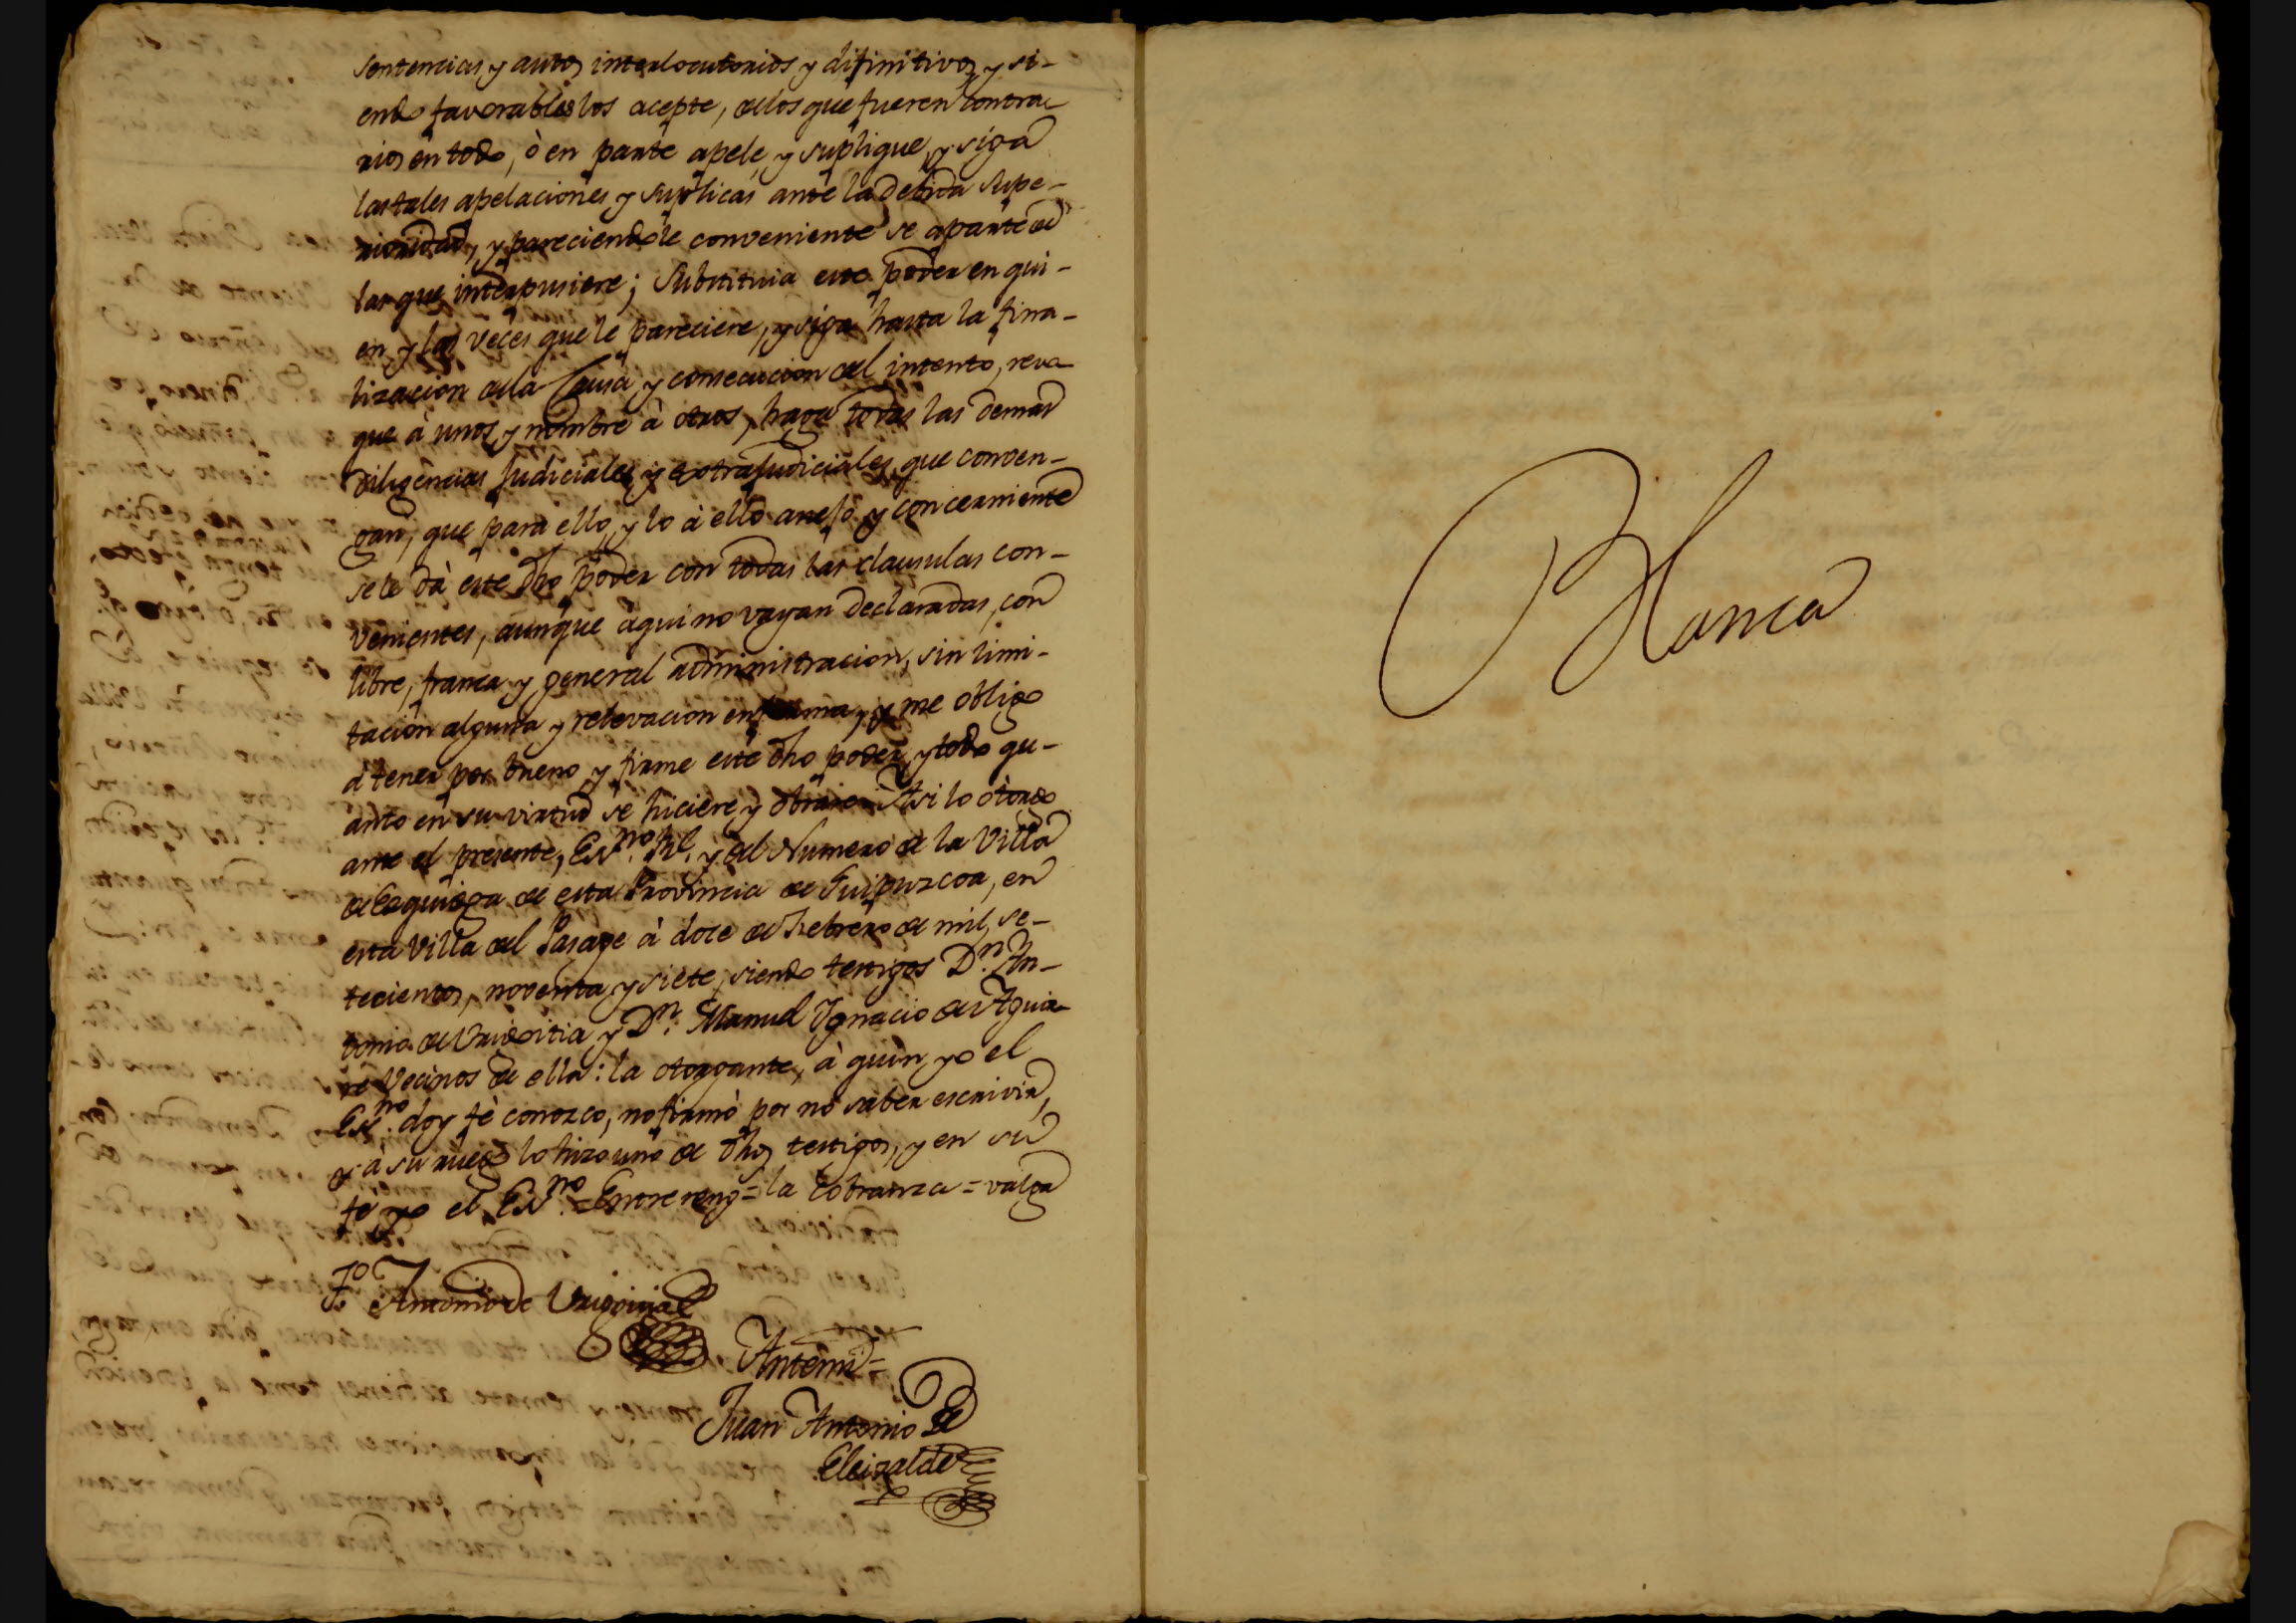 sentencias y autos interlocutorios y difinitivos y si-
endo favorables los acepte, de los que fueren contra-
rios en todo, ò en parte apele, y suplique, y siga
las tales apelaciones y suplicas ante la debida supe-
rioridad, y pareciendole conveniente se aparte de
las que interpusiere; substituia este poder en qui-
en y las veces que le pareciere, y siga hasta la fina-
lizacion de la Causa y consecucion del intento, revo
que à unos, y nombre à otros, haga todas las demas
diligencias Judiciales, y extrajudiciales, que conven-
gan, que para ello, y lo à ello anejo y concerniente
se le dà este dho poder con todas las clausulas con-
venientes, aunque aqui no vayan declaradas, con
libre, franca y general administracion, sin limi-
tacion alguna y relevacion en forma, y me obligo
à tener por bueno y firme este dho poder, y todo qu-
anto en su virtud se hiciere y obrare: Asi lo otorgo
ante el presente, Essno. Rl. y del Numero de la Villa
de Eeguiega de esta Provincia de Guipuzcoa, en
esta Villa del Pasage à doce de Febrero de mil, se-
tecientos, noventa y siete, siendo testigos Dn. An-
tonio de Urigoitia y Dn. Manuel Ignacio de Aguir-
re Vecinos de ella: la otorgante, à quien yo el
Essno. doy fè conozco, no firmò por no saber escrivir,
y à su ruego lo hizo uno de dhos testigos, y en su
fe yo el Essno. = Entre reng.s = la cobranza = valga
To. Antonio de Urigoitia
Antemi =
Juan Antonio de
Elizalde
Blanca